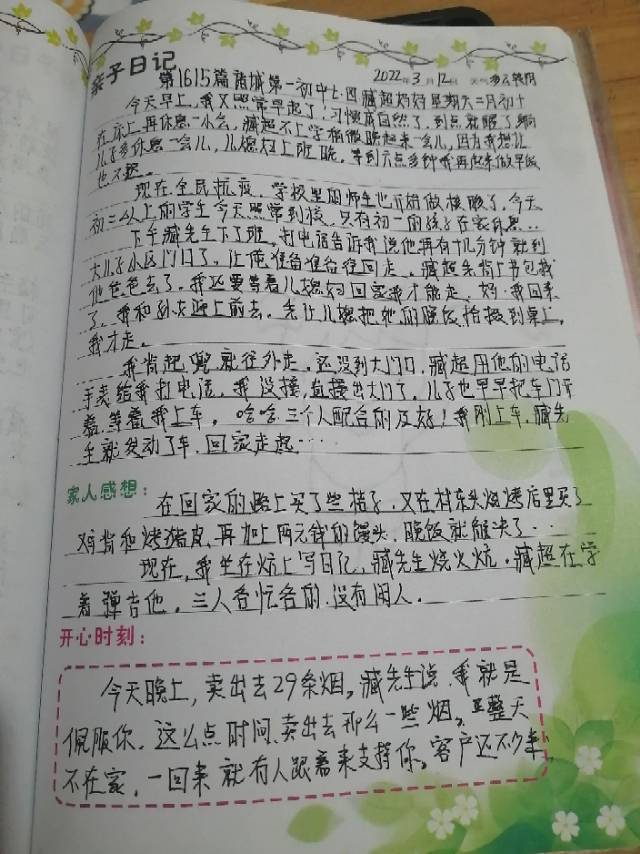 亲子日记
第1615篇 诸城第一初中七.四 臧超妈妈 星期六 二月初十
2022年3月12日 天气多云转阴
今天早上,我又照常早起了,习惯成自然了,到点就醒了,躺
在床上再休息一小会,臧超不上学稍微晚起来一会儿,因为我想让
儿子多休息一会儿,儿媳妇上班晚,等到六点多钟我再起来做早饭
也不晚。
现在全民抗疫,学校里的师生也开始做核酸了,今天
初二以上的学生今天照常到校,只有初一的孩子在家休息..
下午臧先生下了班,打电话告诉我说他再有十几分钟就到
大儿子小区门口了,让俺准备准备往回走,臧超先背上书包找
他爸爸去了,我还要等着儿媳妇回家我才能走,好,我回来
了,我和孙女迎上前去,先让儿媳把她的晚饭拾掇到桌上,
我才走。
我背起包就往外走,还没到大门口,臧超用他的电话
手表给我打电话,我没接,直接出大门了,儿子也早早把车门开
着,等着我上车,哈哈,三个人配合的及好!我刚上车,臧先
生就发动了车,回家走起…
家人感想:
在回家的路上买了些桔子,又在村东头烧烤店里买了
鸡背和烤猪皮,再加上两元钱的馒头,晚饭就解决了..
现在,我坐在炕上写日记,臧先生烧火炕,臧超在学
着弹吉他,三人各忙各的,没有闲人.
开心时刻:
今天晚上,卖出去29条烟,臧先生说,我就是
佩服你,这么点时间,卖出去那么一些烟,整天
不在家,一回来就有人跟着来支持你,客户还不少来